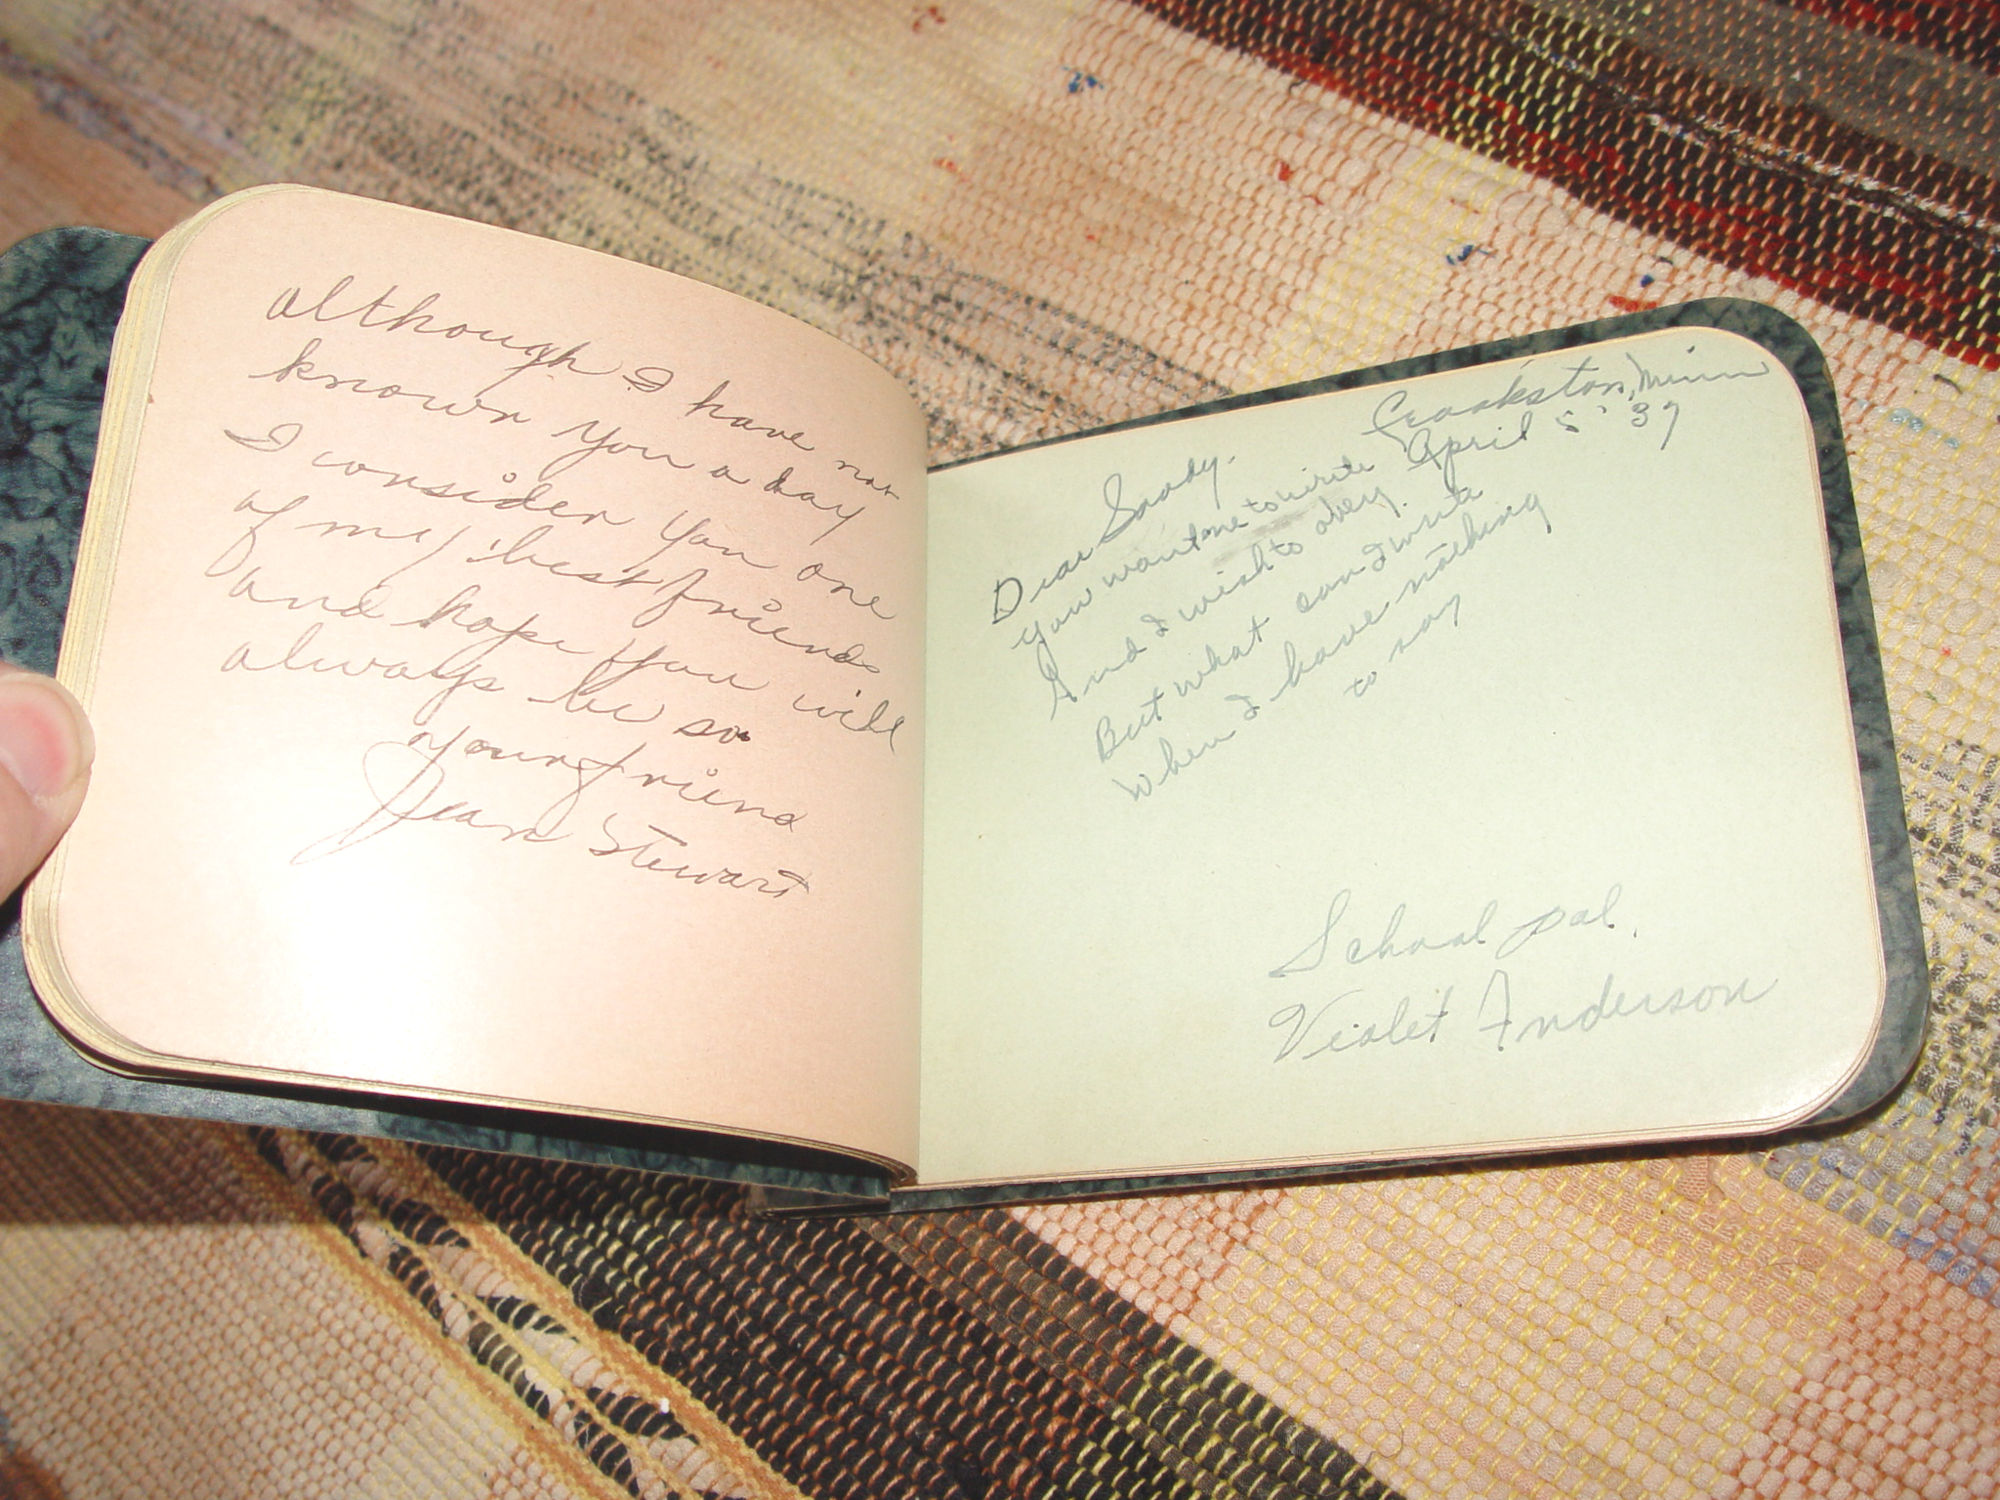 although I have not
known you a day
I consider you one
of my best friends
and hope you will
always be so
your friend
Jean Stewart
Crookston, Minn
April 5 '37
Dear Sandy.
You want me to write
And I wish to obey.
But what can I write
When I have nothing
to say
School pal.
Violet Anderson